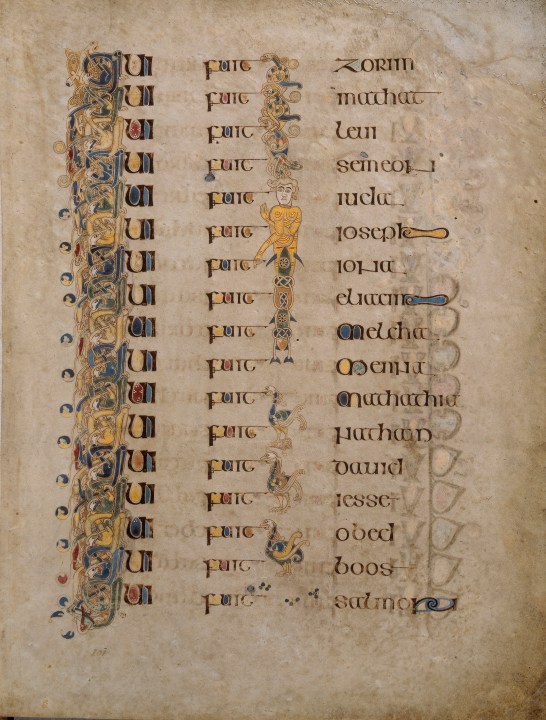 QUI fuit zorim
QUI fuit mathat
QUI fuit leui
QUI fuit semeon
QUI fuit iuda
QUI fuit ioseph
QUI fuit iona
QUI fuit eliacim
QUI fuit melcha
QUI fuit menna
QUI fuit mathathia
QUI fuit nathan
QUI fuit dauid
QUI fuit iesse
QUI fuit obed
QUI fuit boos
QUI fuit salmon